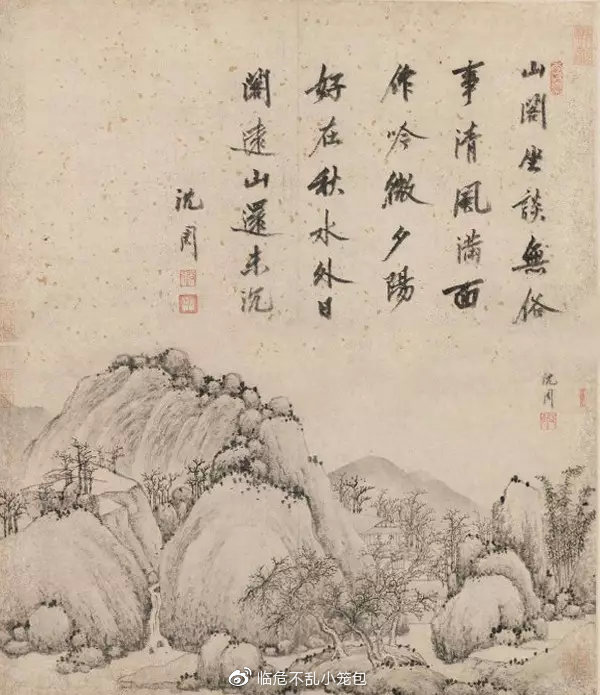 山閣坐談無俗
事清風滿面
作吟微夕陽
好在秋水外日
闊遠山還未沉
沈周
沈周
临危不乱小笼包